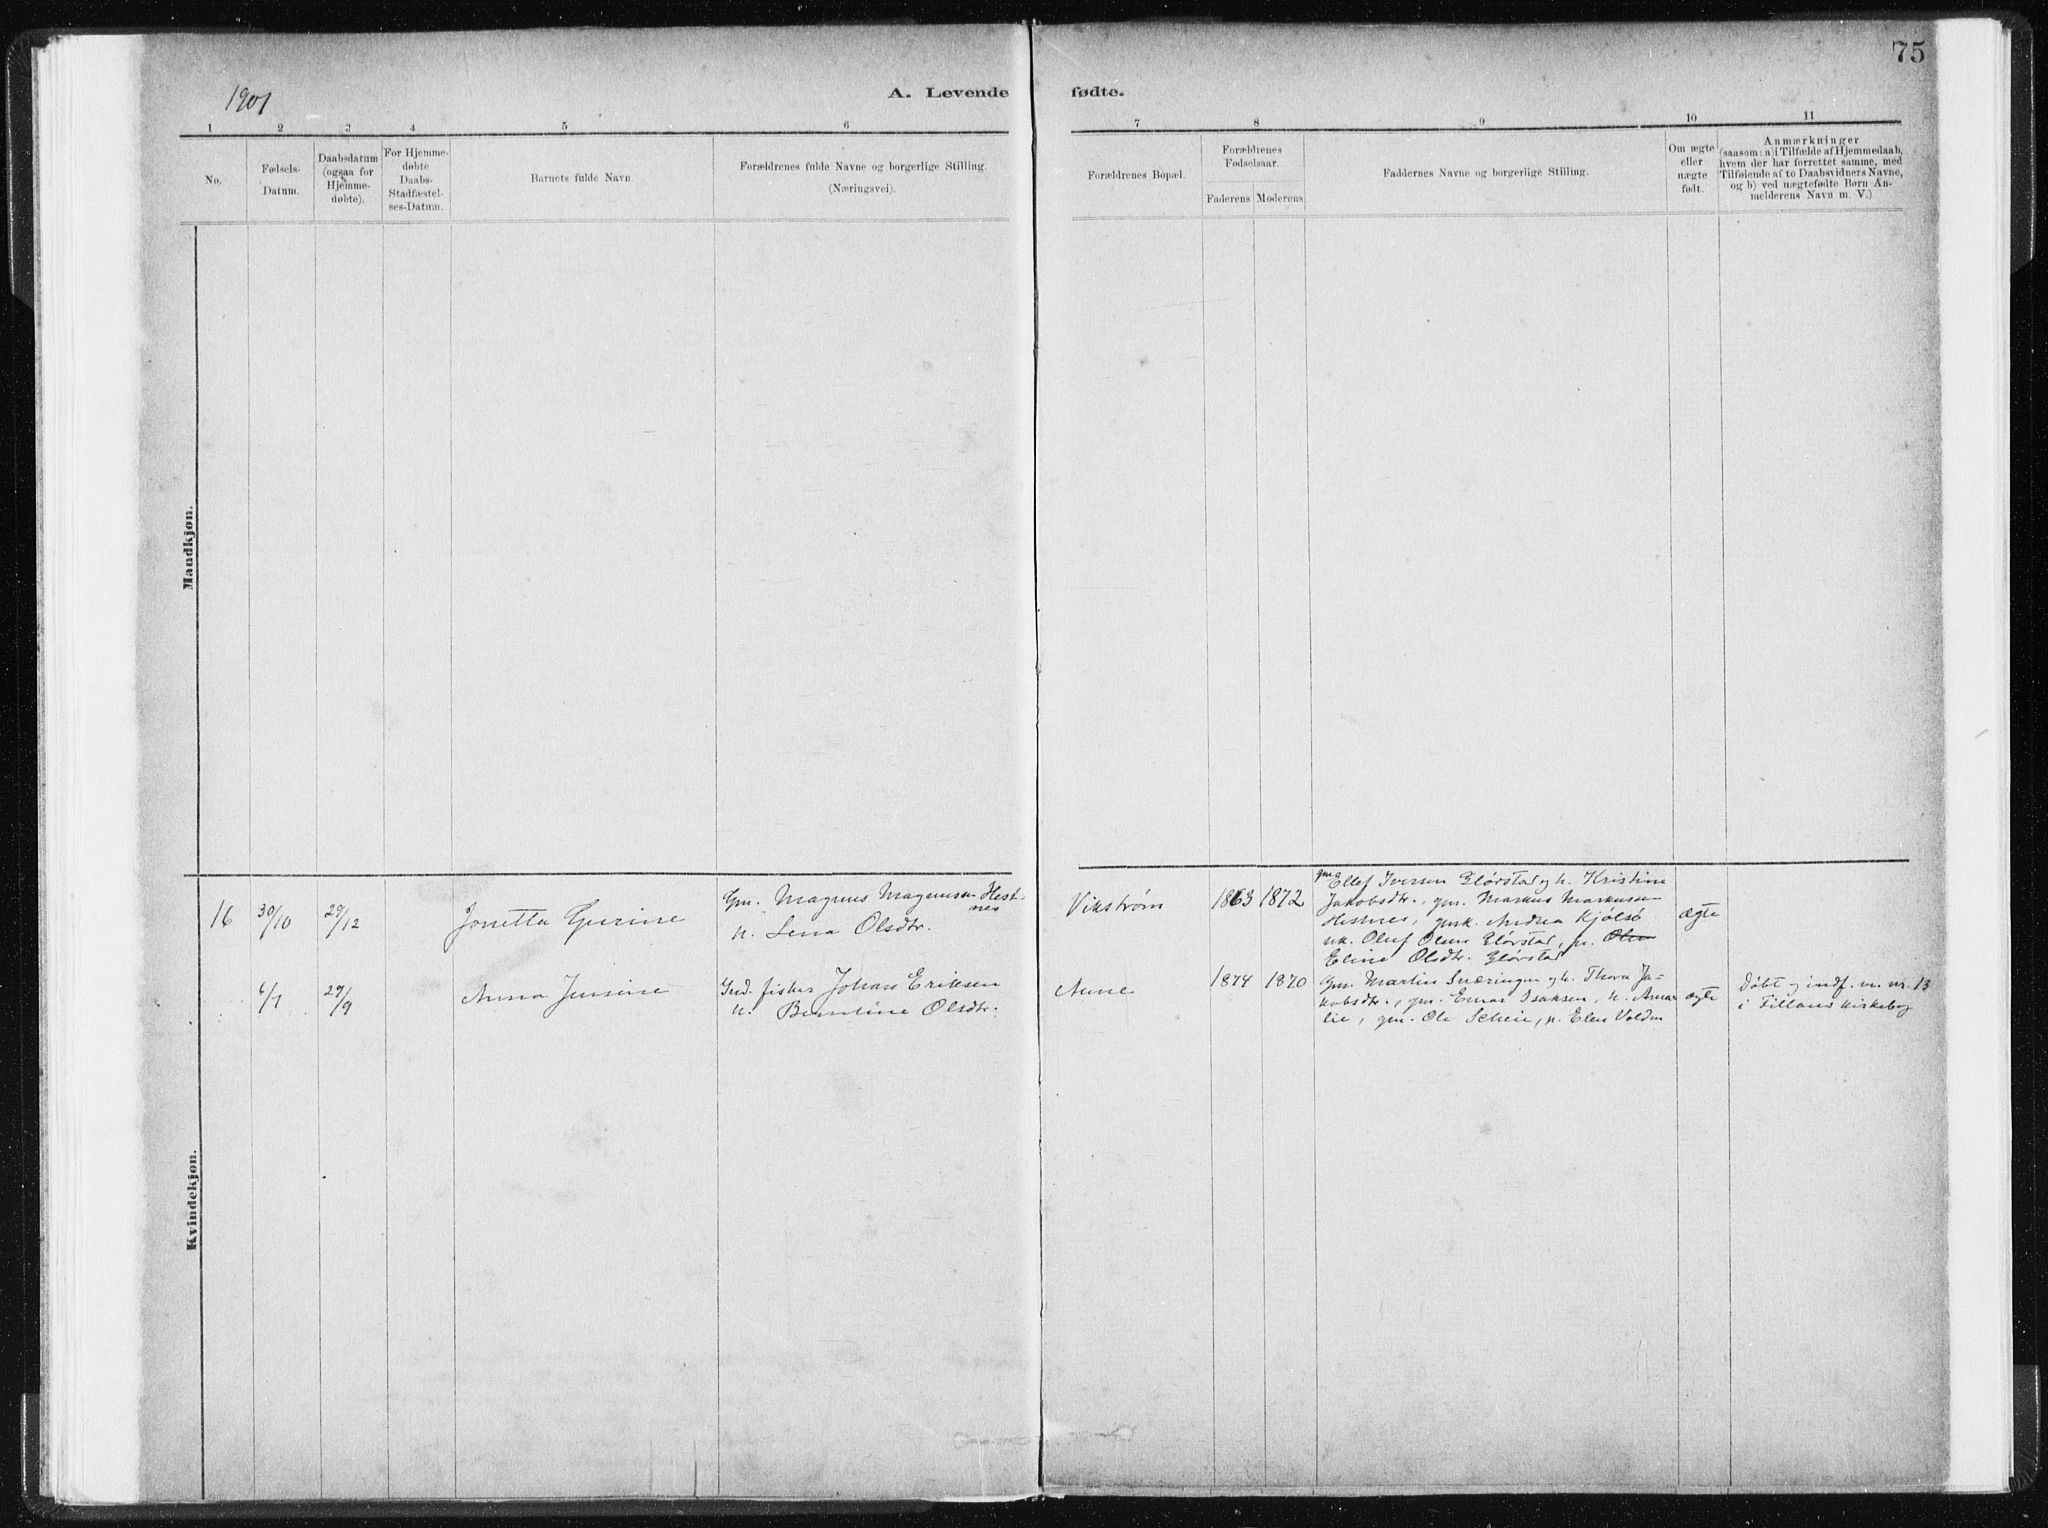 75
1901
A. Levende fødte.
1 2 3 4 5 6 7 8 9 10 11
No.
Fødsels-
Datum.
Daabsdatum
(ogsaa for
Hjemme-
døbte).
For Hjemme-
døbte
Daabs-
Stadfæstel-
ses-Datum.
Barnets fulde Navn.
Forældrenes fulde Navne og borgerlige Stilling.
(Næringsvei).
Forældrenes Bopæl.
Forældrenes
Fødselsaar.
Faderens Moderens
Faddernes Navne og borgerlige Stilling.
Om ægte
eller
uægte
født.
Anmærkninger
(saasom: a) i Tilfælde af Hjemmedaab,
hvem der har forrettet samme, med
Tilføiende af to Daabsvidners Navne,
og b) ved uægtefødte Børn An-
melderens Navn m. V.)
Mandkjøn.
Kvindekjøn.
16 30/10 29/12 Jonetta Gurine
Gm. Magnus Magnussen Hest-
nes
h. Lena Olsdtr.
Vikstrøm 1863 1872
gm Ellef Iversen Glørstad og h. Kristine
Jakobsdtr., gm. Markus Markussen
Hestnes, gmk. Andrea Kjølsø
uk. Oluf Olsen Glørstad, p. Olea
Eline Olsdtr. Glørstad
ægte
6/7 29/9 Anna Jensine
Ind. fisker Johan Eriksen
h. Berntine Olsdtr.
Aune 1874 1870
Gm. Martin Snæringen og h. Thora Ja-
kobsdtr., gm. Einar Isaksen, h. Ama-
lie, gm. Ole Scheie, p. Elen Volden
ægte
Døbt og indf. u. nr. 13
i Fillans kirkebog